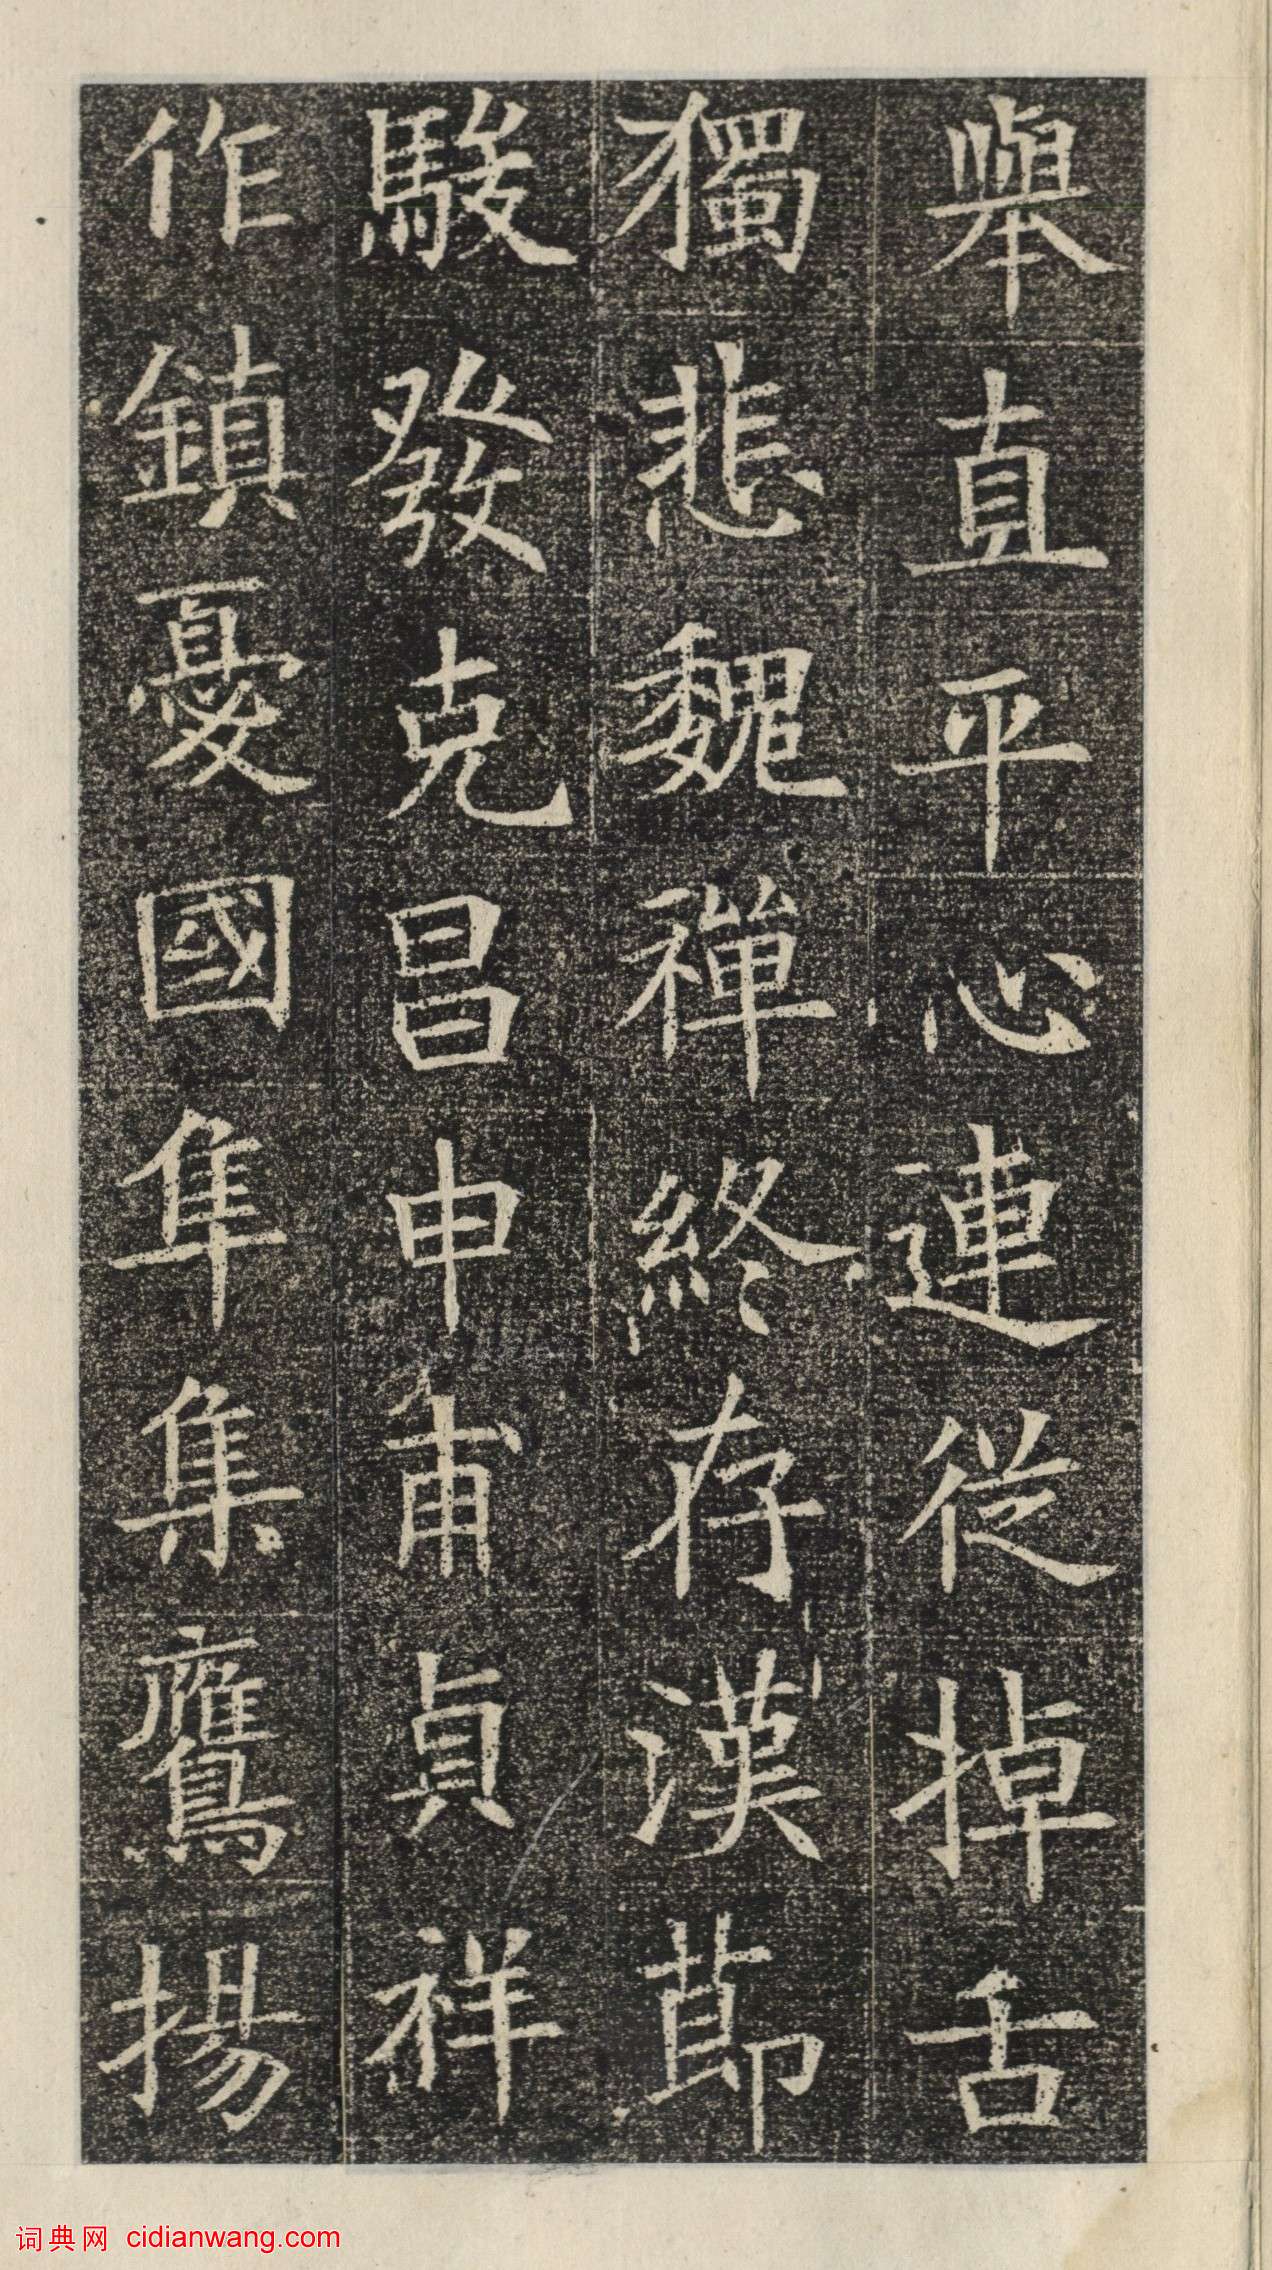 舉直平心連從掉舌
獨悲魏禪終存漢節
駿發克昌申甫貞祥
作鎮憂國隼集鷹揚
词典网 cidianwang.com